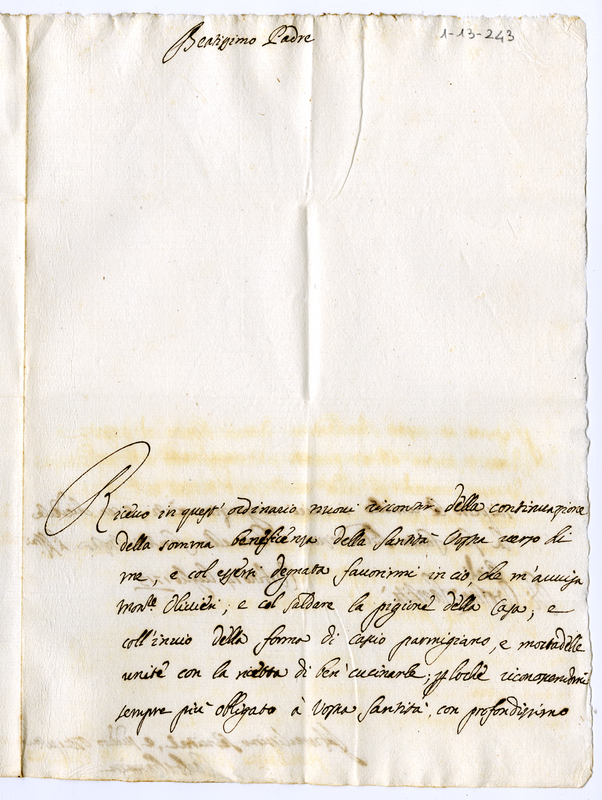 Beatissimo Padre
1-13-243
Ricevo in quest' ordinario nuovi riscontri della continuazione
della somma beneficenza della Santità Vostra verso di
me, e col essersi degnata favorirmi in ciò, che m'avvisa
Monsre Olivieri; e col saldare la pigione della Casa; e
coll'invio della forma di casio parmigiano, e mortadelle
unite con la ricetta di ben cucinarle; per loche riconoscendomi
sempre più obligato à Vostra Santità, con profondissimo